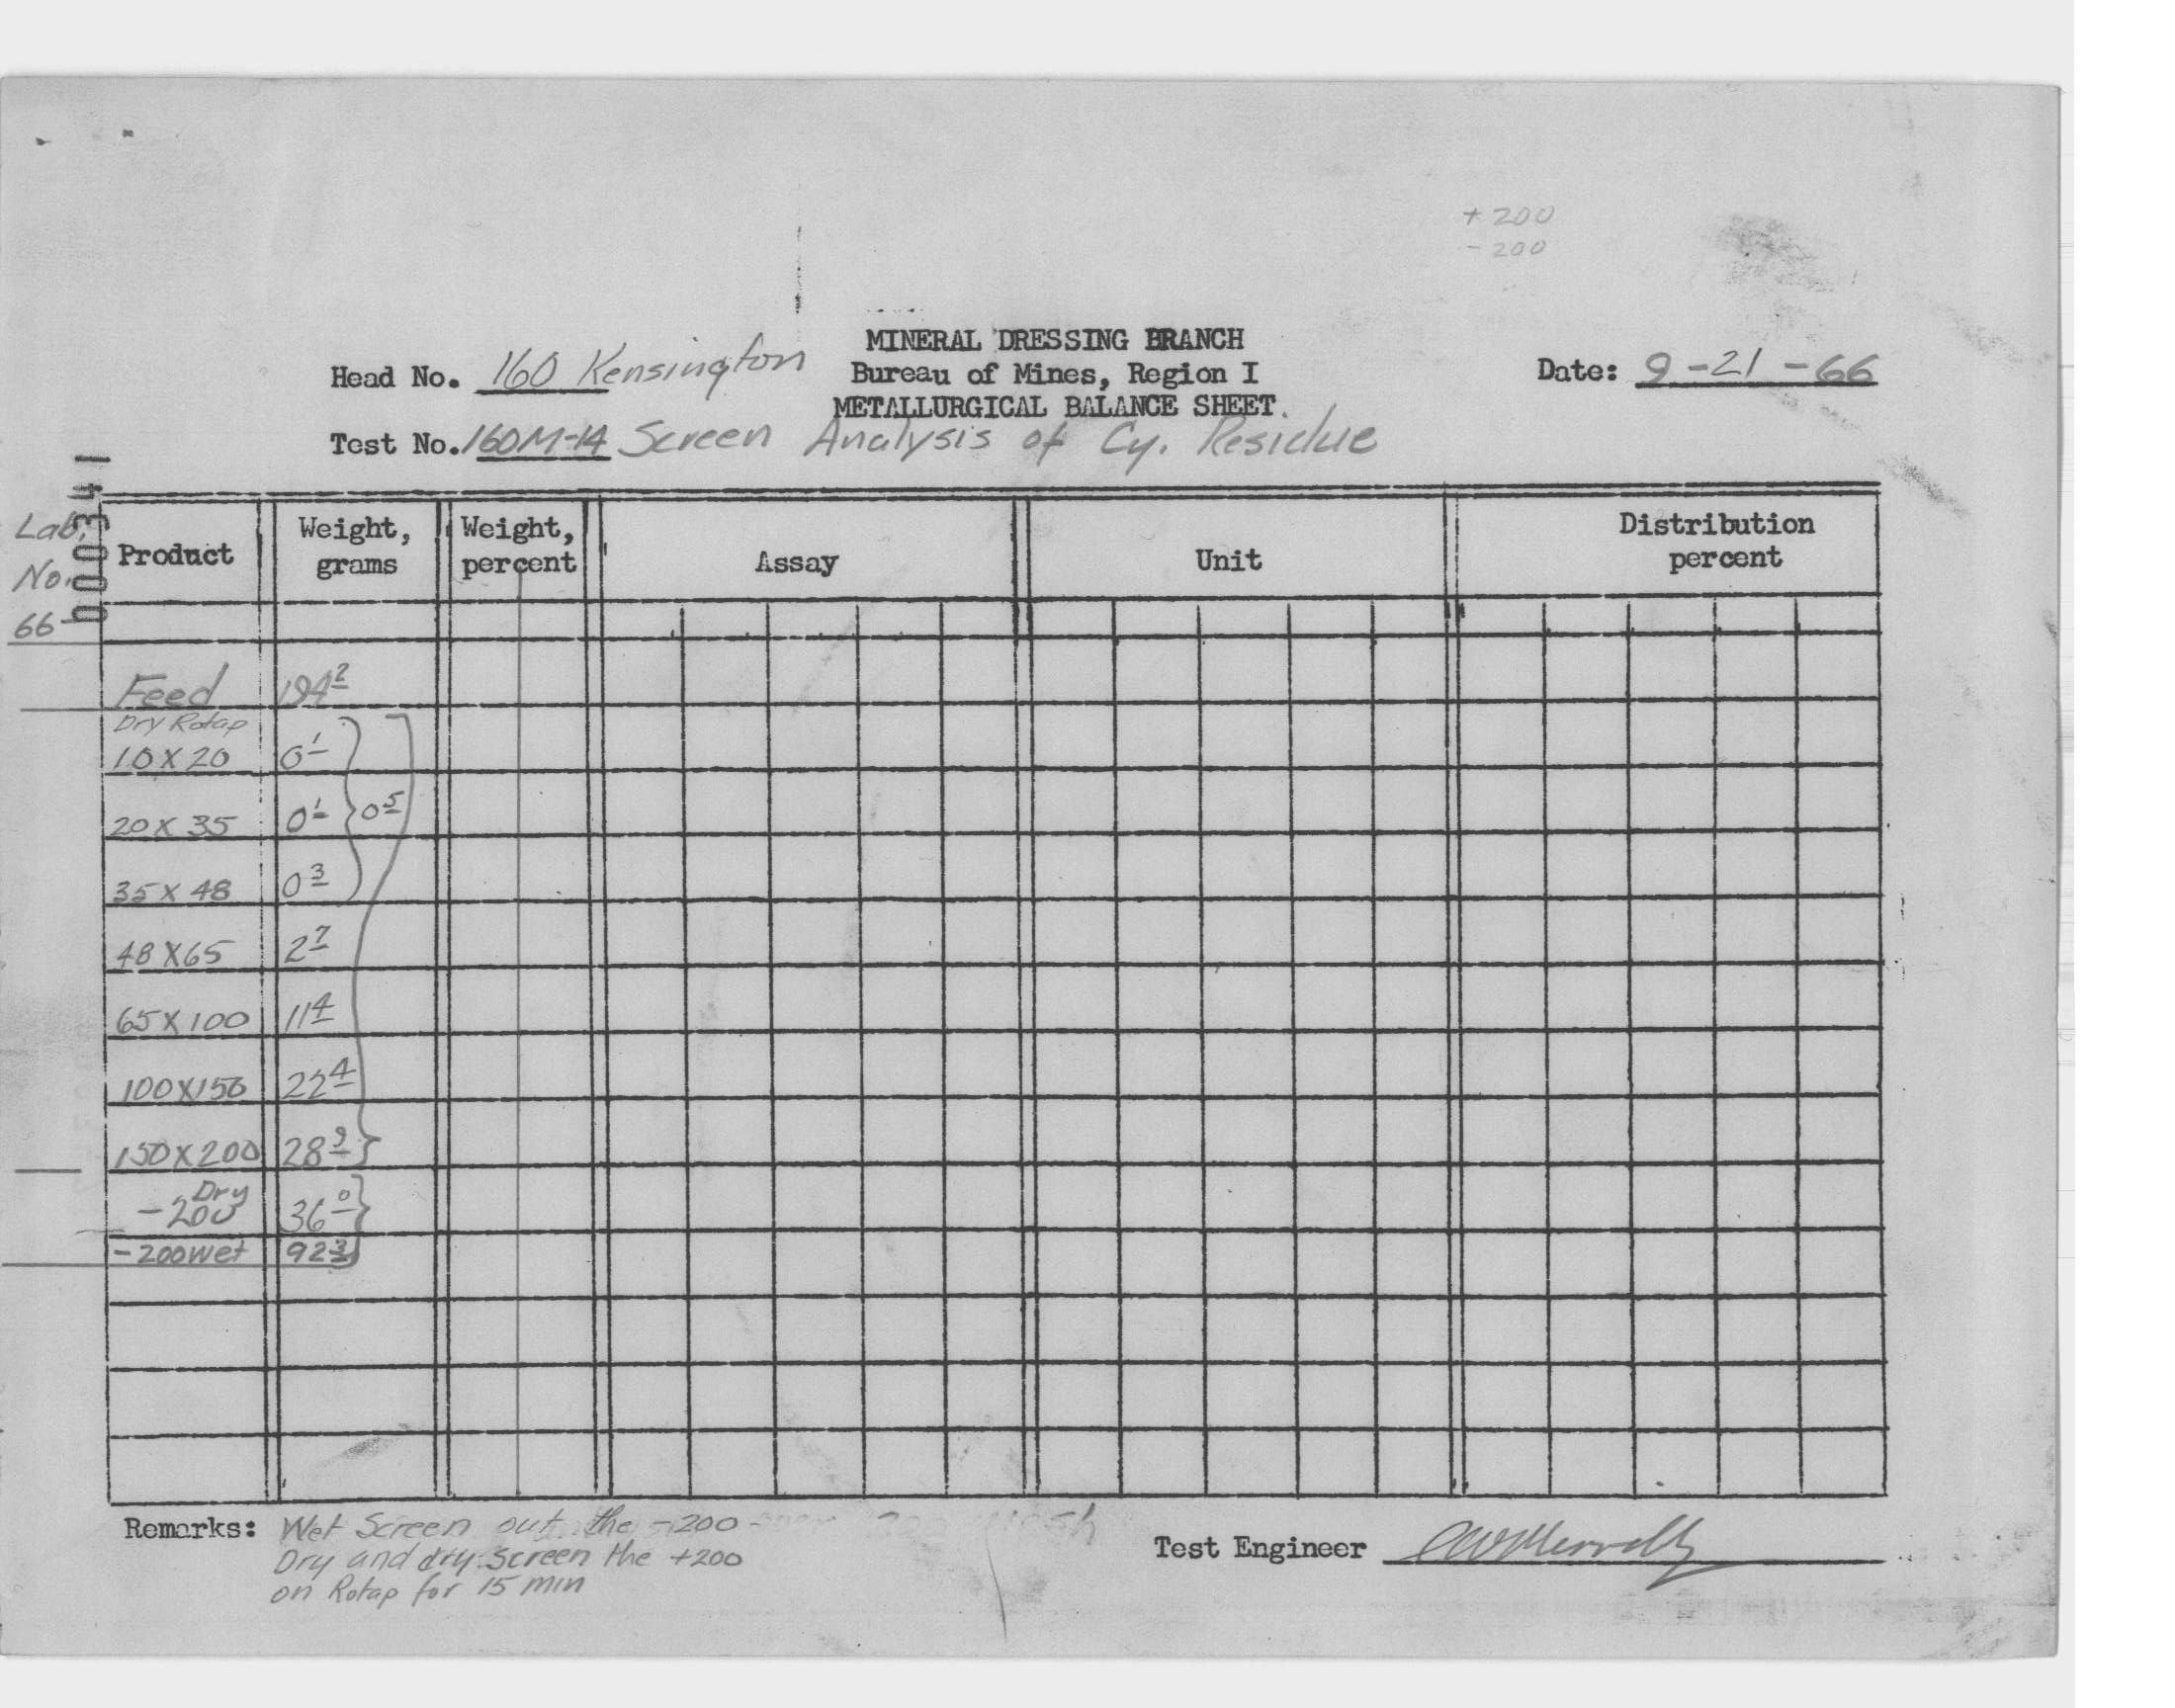 + 200
- 200
MINERAL DRESSING BRANCH
Head No. 160 Kensington Bureau of Mines, Region I Date: 9-21-66
METALLURGICAL BALANCE SHEET
Test No. 160M-14 Screen Analysis of Cy. Residue
000341
Lab. No. 66-
Product Weight, grams Weight, percent Assay Unit Distribution percent
Feed 194 2
Dry Rotap
10 X 20 0 1
20 X 35 0 1 0 5
35 X 48 0 3
48 X 65 2 7
65 X 100 11 4
100 X 150 22 4
150 X 200 28 9
Dry
-200 36 0
-200 wet 92 3
Remarks: Wet Screen out the -200-
Dry and dry screen the +200
on Rotap for 15 min
Test Engineer